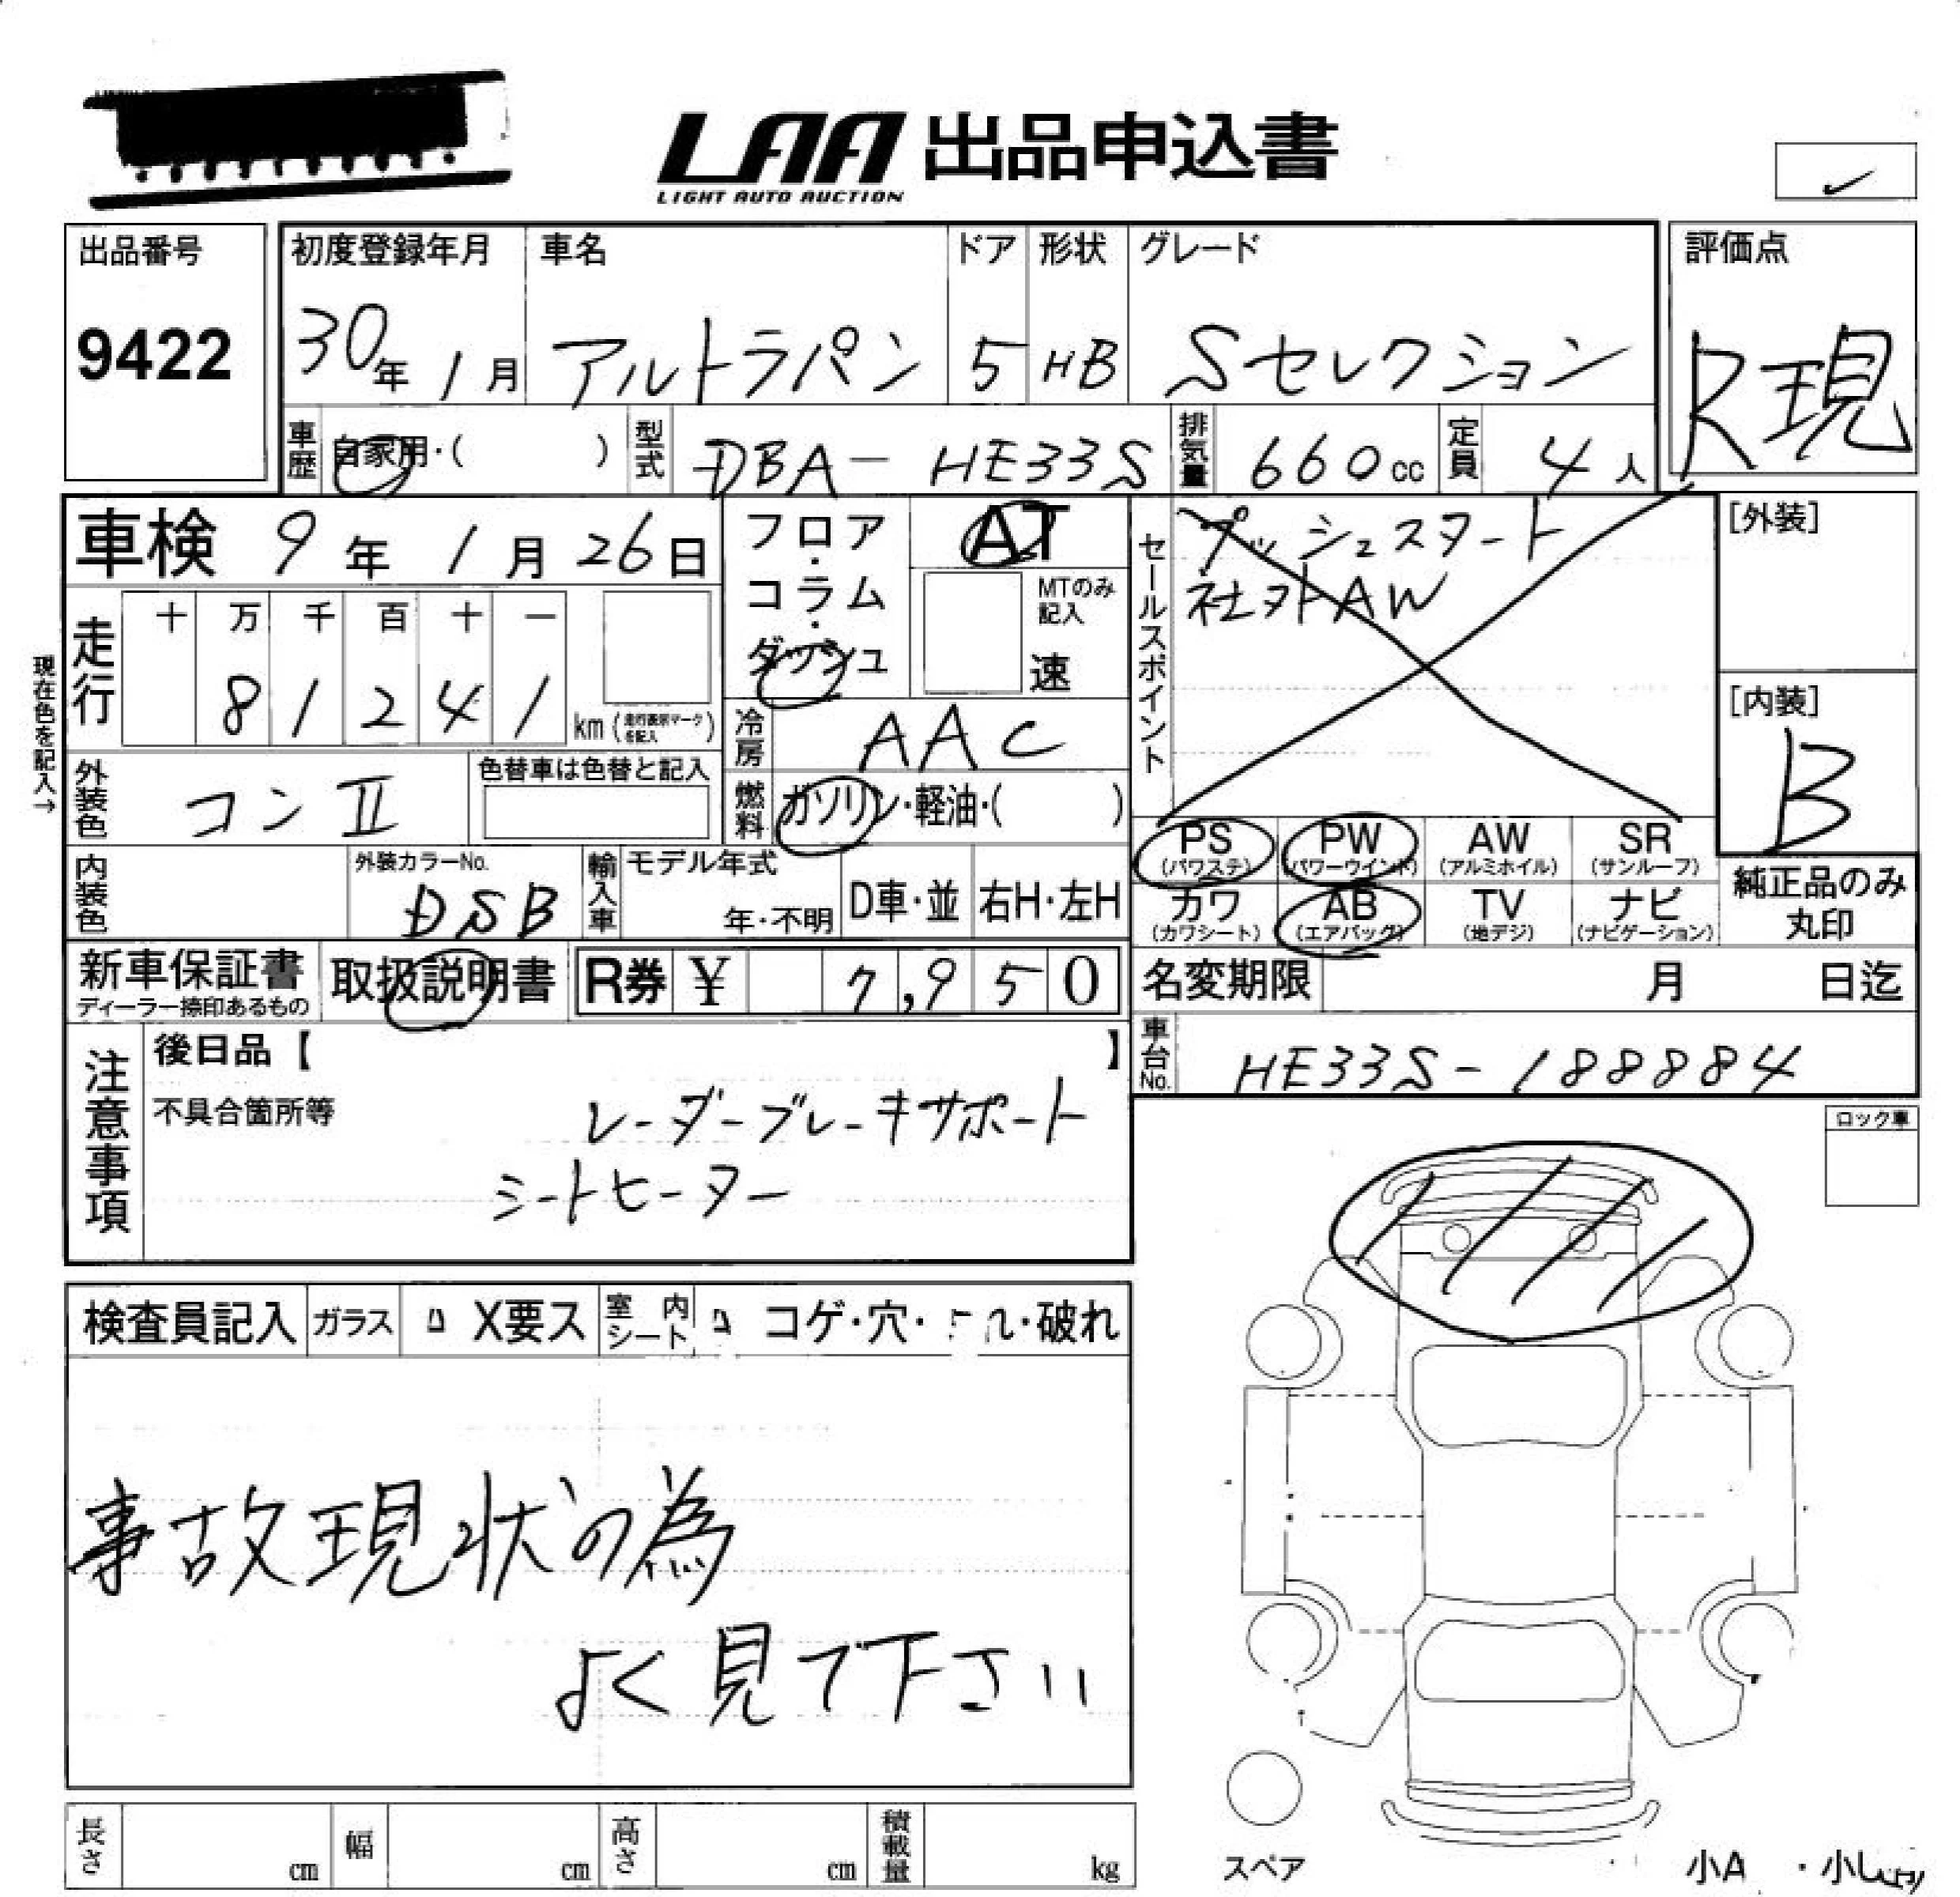 LAA 出品申込書
LIGHT AUTO AUCTION
出品番号
9422
初度登録年月
30年 1月
車名
アルトラパン
ドア
5
形状
HB
グレード
Sセレクション
評価点
R現
車歴 自家用・( )
型式 DBA-HE33S
排気量 660cc
定員 4人
車検 9年 1月 26日
フロア・コラム・ダッシュ
AT
MTのみ記入
速
セールスポイント
プッシュスタート
社外AW
[外装]
[内装]
B
現在色を記入→
走行 十 万 千 百 十 一
8 1 2 4 1 km(走行表示マークを記入)
冷房 AAC
外装色 コンII
色替車は色替と記入
燃料 ガソリン・軽油・( )
PS (パワステ)
PW (パワーウインド)
AW (アルミホイル)
SR (サンルーフ)
内装色
外装カラーNo.
DSB
輸入車
モデル年式
年・不明
D車・並
右H・左H
カワ (カワシート)
AB (エアバック)
TV (地デジ)
ナビ (ナビゲーション)
純正品のみ
丸印
新車保証書
ディーラー捺印あるもの
取扱説明書
R券 ¥ 7,950
名変期限 月 日迄
車台No. HE33S-188884
注意事項
後日品【 】
不具合箇所等
レーダーブレーキサポート
シートヒーター
ロック車
検査員記入 ガラス X要ス 室内シート コゲ・穴・ ・破れ
事故現状の為
よく見て下さい
長さ cm 幅 cm 高さ cm 積載量 kg
スペア
小A ・小